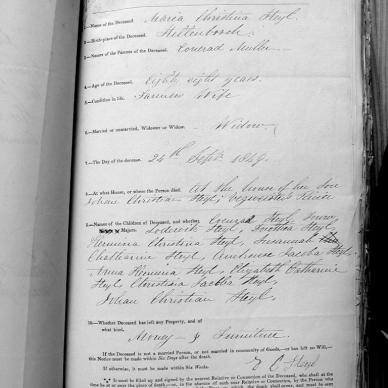 1.—Name of the Deceased, Maria Christina Heyl.
2.—Birth-place of the Deceased,
3.—Names of the Parents of the Deceased, Conrad Muller
4.—Age of the Deceased, Eighty eight years.
5.—Condition in life, Farmers Wife
6.—Married or unmarried, Widower or Widow, Widow
7.—The Day of the decease, 24th Sept 1849.
8.—At what House, or where the Person died, At the house of her Son
Johan Christian Heyl,
9.—Names of the Children of Deceased, and whether Conrad Heyl,
Majors, Loderick Heyl, Dorothea Heyl,
Hermina Christina Heyl, Susannah
Catharine Heyl, Jacoba Heyl,
Anna Heyl, Elizabeth Catharine
Heyl, Christina Jacoba Heyl,
Johan Christian Heyl,
10.—Whether Deceased has left any Property, and of
what kind,
Money & Furniture
If the Deceased is not a married Person, or not married in community of Goods,—or has left no Will,—
this Notice must be made within Six Days after the death.
If otherwise, it must be made within Six Weeks.
Heyl
It must be filled up and signed by the nearest Relative or Connection of the Deceased, who shall at
the time be at or near the place of death,